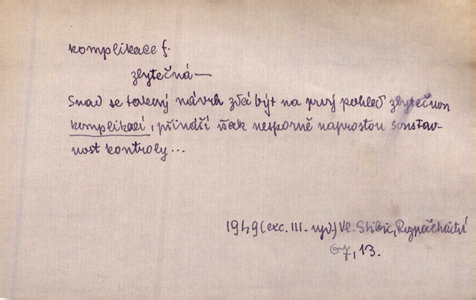 komplikace f.
zbytečná—
Snad se takový návrh zdá být na prvý pohled zbytečnou
komplikací, přináší však nesporně naprostou soustav-
nost kontroly...
1949 (exc. III. vyd.) Vl.
13.